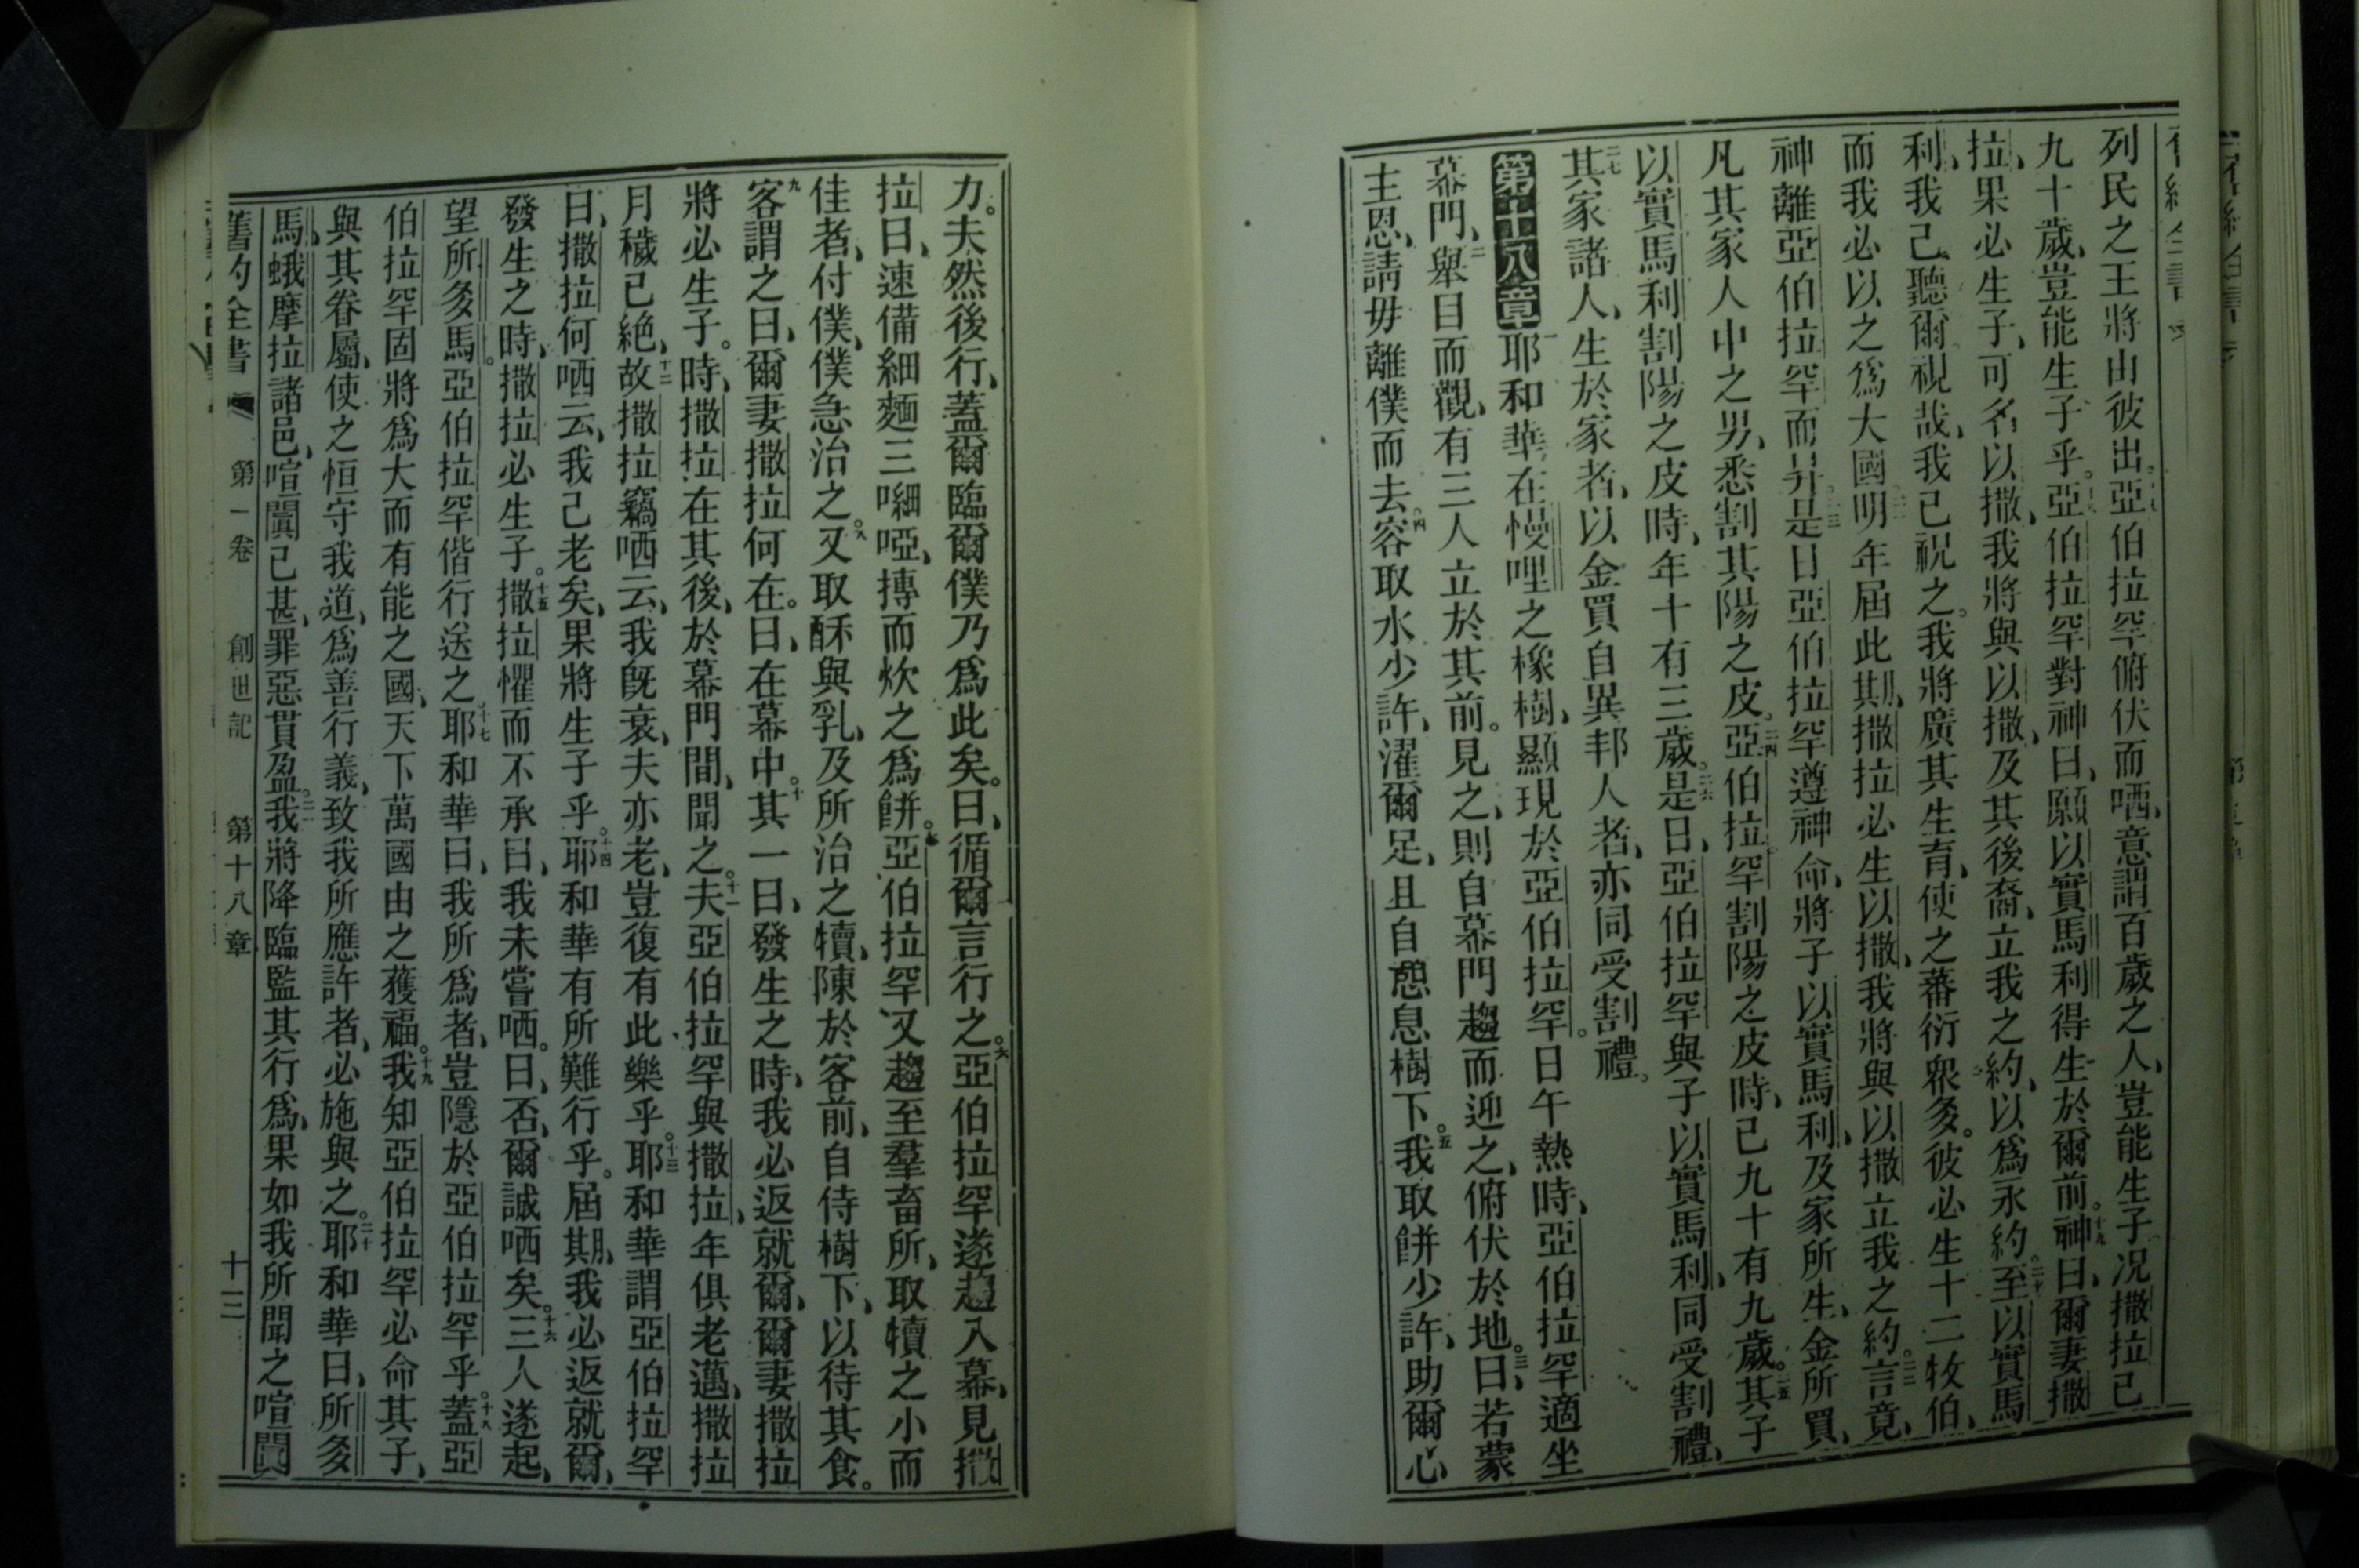 列民之王將由彼出。十七亞伯拉罕俯伏而哂、意謂百歲之人、豈能生子、况撒拉已
九十歲、豈能生子乎。十八亞伯拉罕對神曰、願以實馬利得生於爾前。十九神曰、爾妻撒
拉、果必生子、可名以撒、我將與以撒、及其後裔、立我之約、以爲永約。二十至以實馬
利、我已聽爾祝哉、我已祝之。我將廣其生育、使之蕃衍衆多。彼必生十二牧伯、
而我必以之爲大國。二一明年屆此期、撒拉必生以撒、我將與以撒立我之約。二二言竟、
神離亞伯拉罕而升。二三是日亞伯拉罕遵神命、將子以實馬利、及家所生、金所買、
凡其家人中之男、悉割其陽之皮。二四亞伯拉罕割陽之皮時、已九十有九歲。二五其子
以實馬利割陽之皮時、年十有三歲。二六是日、亞伯拉罕與子以實馬利、同受割禮、
二七其家諸人、生於家者、以金買自異邦人者、亦同受割禮。
第十八章 一耶和華在慢哩之橡樹、顯現於亞伯拉罕。日午熱時、亞伯拉罕適坐
幕門、二舉目而觀、有三人立於其前。見之、則自幕門趨而迎之、俯伏於地。三曰、若蒙
主恩、請毋離僕而去。四容取水少許、濯爾足、且自憩息樹下。五我取餅少許、助爾心
力。夫然後行、蓋爾臨爾僕乃爲此矣。曰、循爾言行之。六亞伯拉罕遂趨入幕、見撒
拉曰、速備細麵三嗍啞、摶而炊之爲餅。七亞伯拉罕又趨至羣畜所、取犢之小而
佳者、付僕、僕急治之。八又取酥與乳、及所治之犢、陳於客前、自侍樹下、以待其食。
九客謂之曰、爾妻撒拉何在。曰、在幕中。十其一曰、發生之時、我必返就爾、爾妻撒拉
將必生子。時、撒拉在其後、於幕門間、聞之。十一夫亞伯拉罕與撒拉、年俱老邁、撒拉
月穢已絕、十二故撒拉竊哂云、我旣衰、夫亦老、豈復有此樂乎。十三耶和華謂亞伯拉罕
曰、撒拉何哂云、我已老矣、果將生子乎。十四耶和華有所難行乎。屆期、我必返就爾、
發生之時、撒拉必生子。十五撒拉懼而不承曰、我未嘗哂。曰、否、爾誠哂矣。十六三人遂起、
望所多馬。亞伯拉罕偕行送之、十七耶和華曰、我所爲者、豈隱於亞伯拉罕乎。十八蓋亞
伯拉罕固將爲大而有能之國、天下萬國由之獲福。十九我知亞伯拉罕必命其子、
與其眷屬、使之恒守我道、爲善行義、致我所應許者、必施與之。二十耶和華曰、所多
馬、蛾摩拉諸邑、喧闐已甚、罪惡貫盈。二一我將降臨監其行爲、果如我所聞之喧闐
舊約全書 第一卷 創世記 第十八章 十三